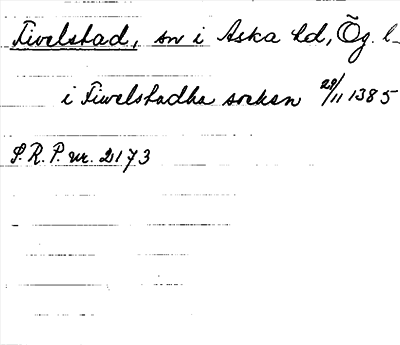 Fivelstad, sn i Aska hd, Ög. l.
i Fiwelstadha socken 29/11 1385
S.R.P. nr. 2173